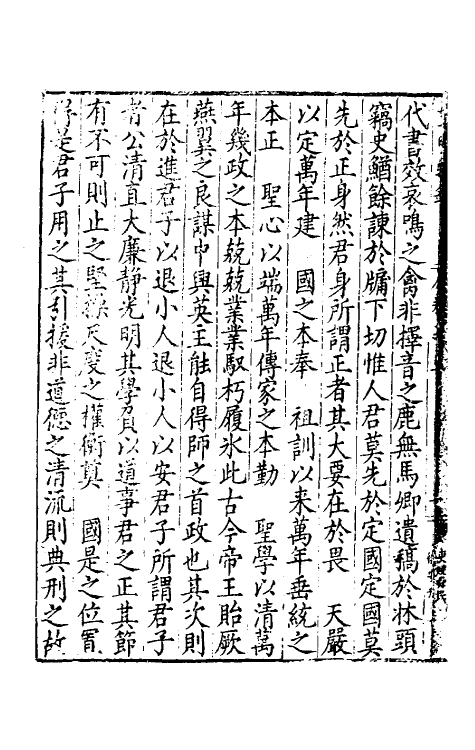 代書效哀鳴之禽非擇音之鹿無馬卿遺稿於牀頭
竊史鰌餘諫於牖下切惟人君莫先於定國定國莫
先於正身然君身所謂正者其大要在於畏　天嚴
以定萬年建　國之本奉　祖訓以来萬年垂統之
本正　聖心以端萬年傳家之本勤　聖學以清萬
年幾政之本兢兢業業馭朽履氷此古今帝王貽厥
燕翼之良謀中興英主能自得師之首政也其次則
在於進君子以退小人退小人以安君子所謂君子
者公清直大廉静光明其學負以道事君之正其節
有不可則止之堅操尺度之權衡奠　國是之位置
是君子用之其引援非道德之清流則典刑之故